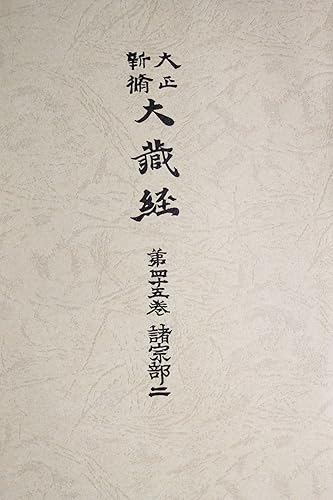 大正
新脩
大藏経
第四十五巻 諸宗部二